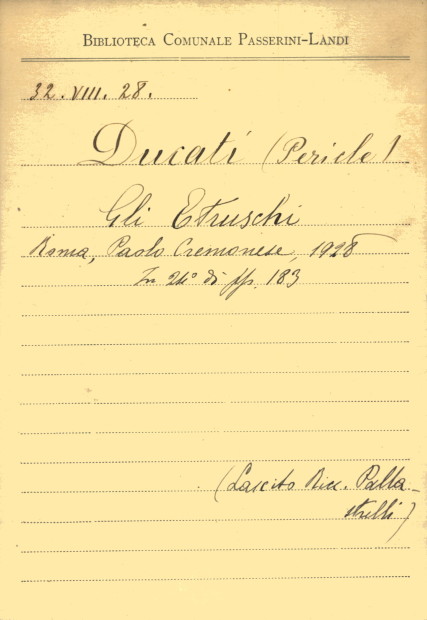 BIBLIOTECA COMUNALE PASSERINI-LANDI
32. VIII. 28.
Ducati (Pericle)
Gli Etruschi
Roma, Paolo Cremonese, 1928
In 24° di pp. 183
(Lascito Ricc. Palla-
strelli)